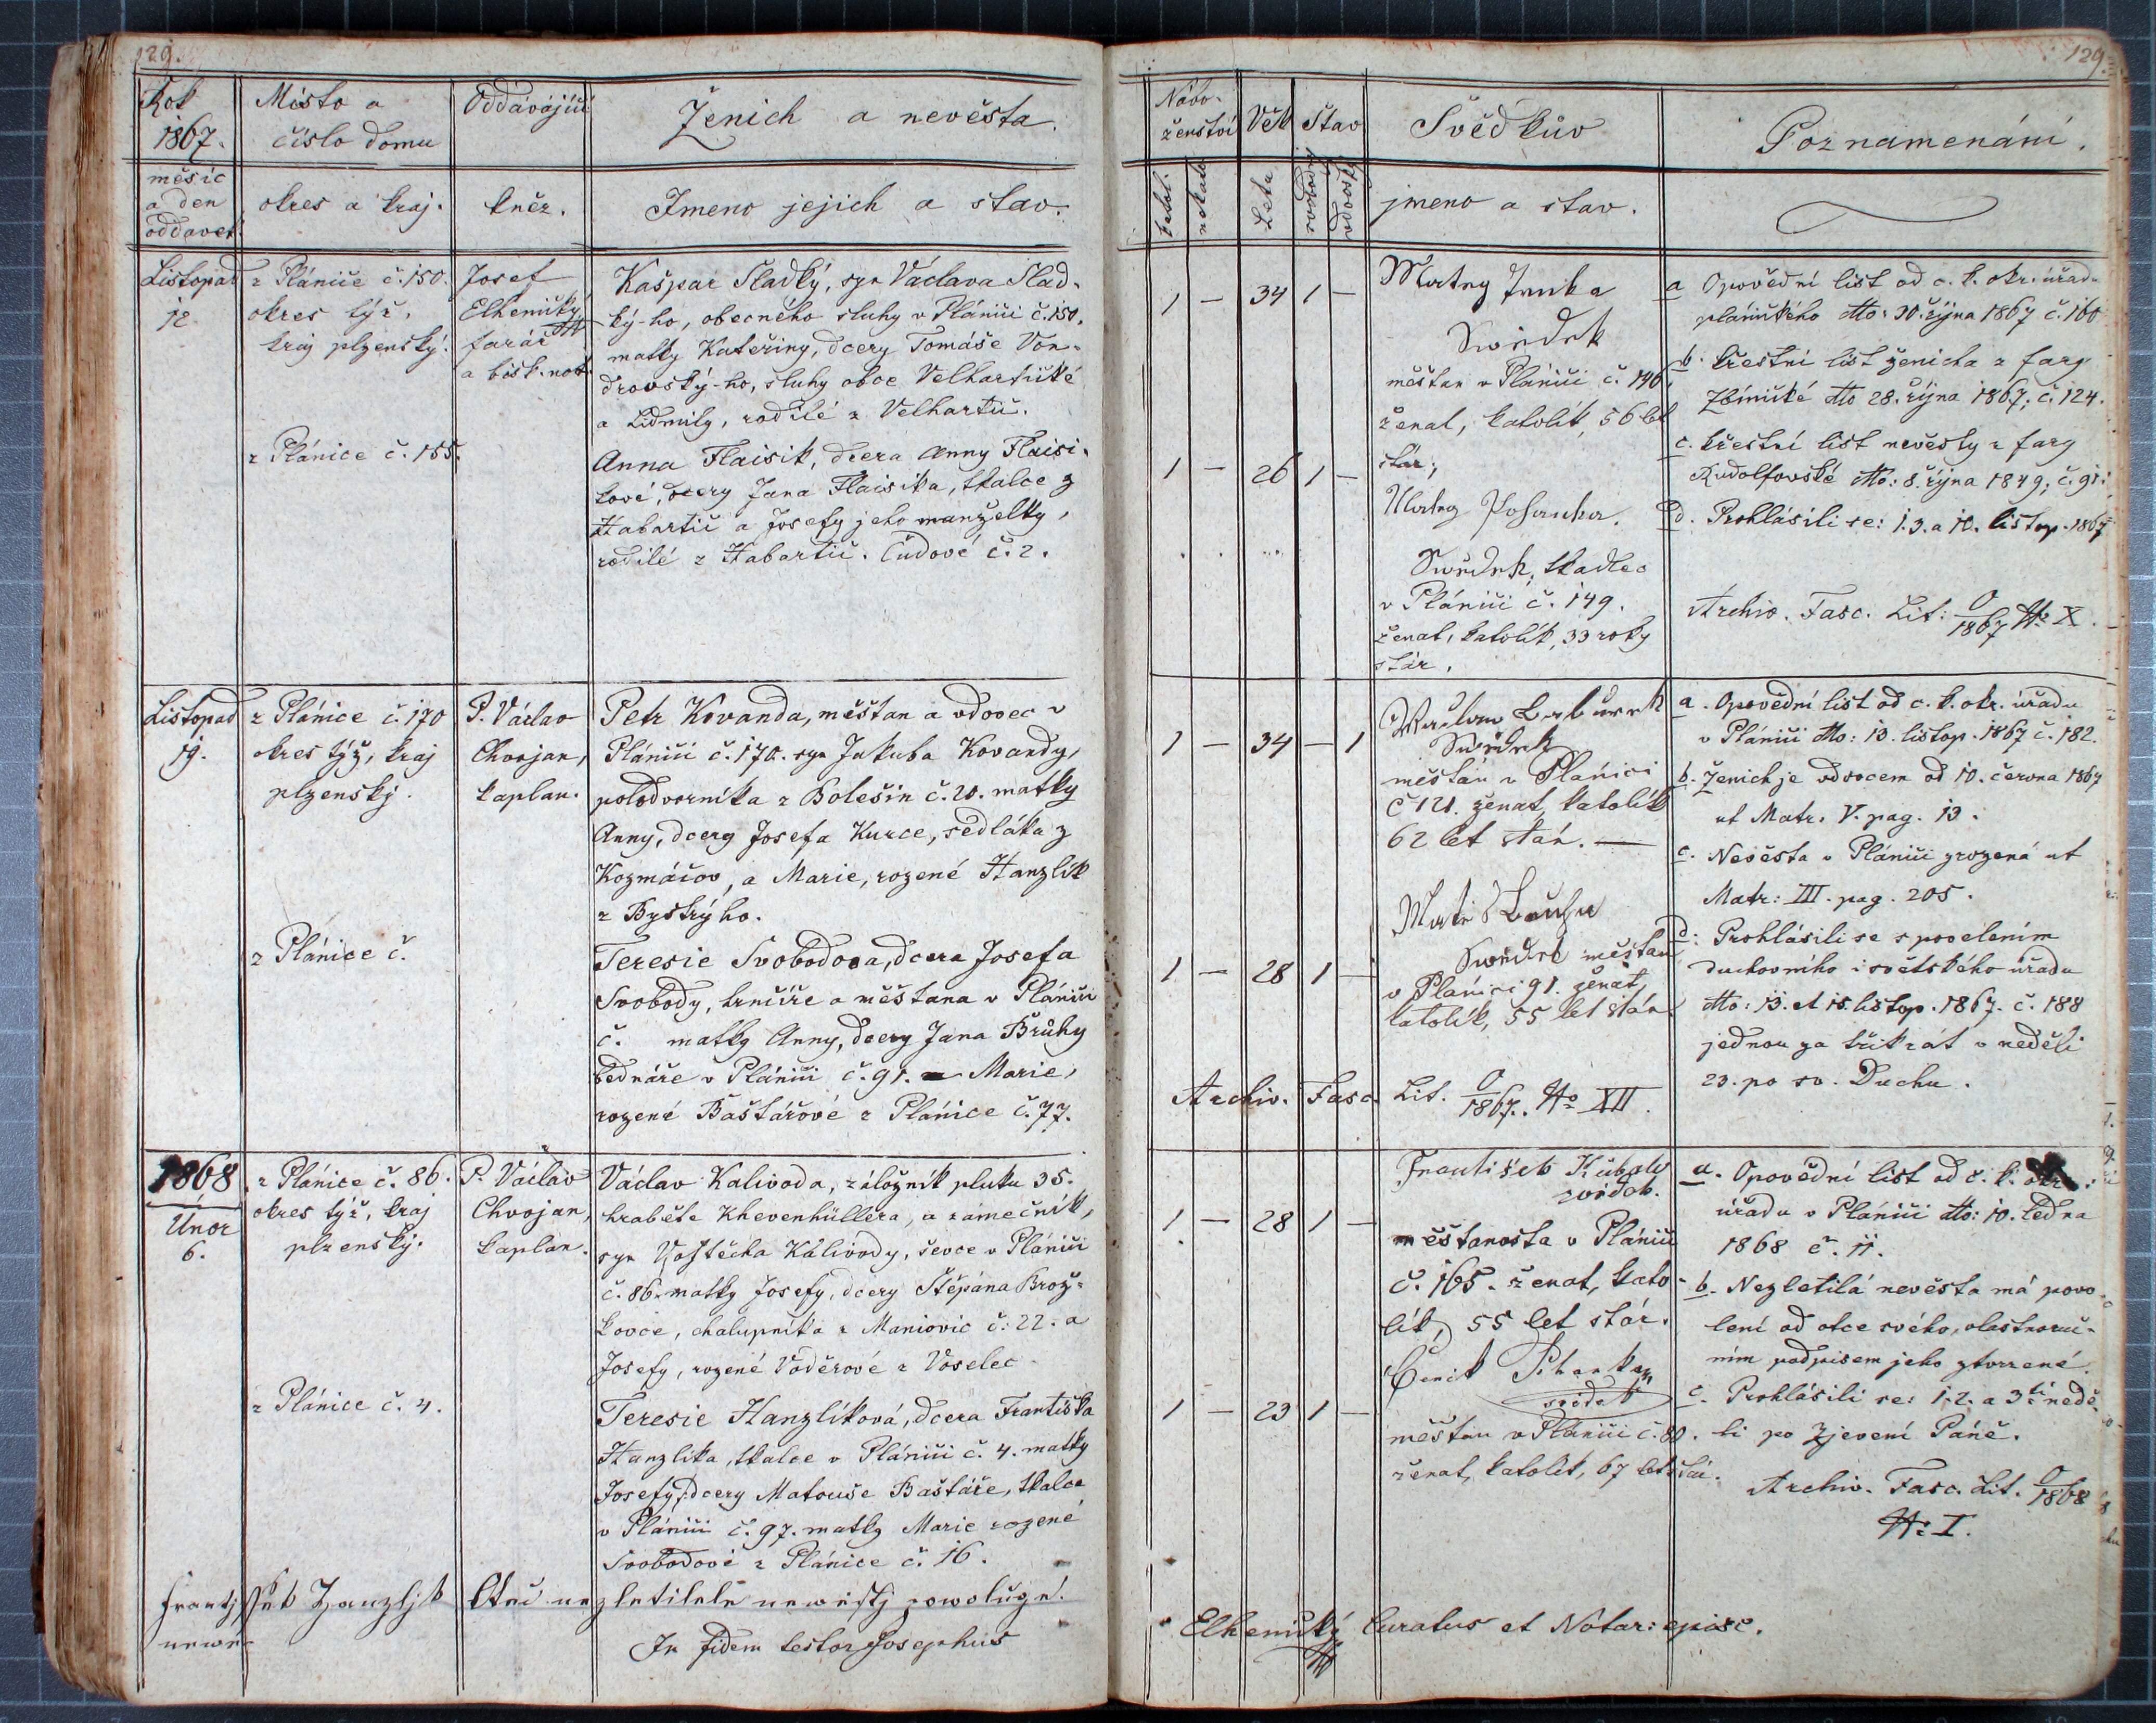 129.
Rok
1867.
Místo a
číslo domu
Oddávající
Ženich a nevěsta.
měsíc
a den
oddavek
okres a kraj.
kněz.
Jmeno jejich a stav.
Listopad
12.
z Plánice č. 150.
okres týž,
kraj plzenský.
Josef
Elhenický,
farář
a bisk. not.
Kašpar Sladký, syn Václava Slad-
ký-ho, obecného sluhy v Plánici č. 150.
matky Kateřiny, dcery Tomáše Von-
drovský-ho, sluhy obce Velhartické
a Lidmily, rodilé z Velhartic.
z Plánice č. 155.
Anna Flaisik, dcera Anny Flaisi-
kové, dcery Jana Flaisika, tkalce z
Habartic a Josefy jeho manželky,
rodilé z Habartic. Čudové č. 2.
Listopad
19.
z Plánice č. 170
okres týž, kraj
plzenský.
P. Václav
Chvojan,
kaplan.
Petr Kovanda, měštan a vdovec v
Plánici č. 170. syn Jakuba Kovandy,
polodvorníka z Bolešin č. 20. matky
Anny, dcery Josefa Kurce, sedláka z
Kozmáčov, a Marie, rozené Hanzlík
z Bystrýho.
z Plánice č.
Teresie Svobodova, dcera Josefa
Svobody, hrnčíře a měštana v Plánici
č. matky Anny, dcery Jana Brůhy
bednáře v Plánici č. 91. a Marie,
rozené Baštářové z Plánice č. 77.
1868
Únor
6.
z Plánice č. 86.
okres týž, kraj
plzenský.
P. Václav
Chvojan,
kaplan.
Václav Kalivoda, záložník pluku 35.
hraběte Khevenhüllera, a zámečník,
syn Vojtěcha Kalivody, ševce v Plánici
č. 86. matky Josefy, dcery Štěpána Brož-
kovce, chalupníka z Maniovic č. 22. a
Josefy, rozené Voděrové z Voselec
z Plánice č. 4.
Teresie Hanzlíková, dcera Františka
Hanzlíka, tkalce v Plánici č. 4. matky
Josefy, dcery Matouše Baštáře, tkalce
v Plánici č. 97. matky Marie rozené
Svobodové z Plánice č. 16.
Frantjssek Hanzljk Otec nezletilele newěstj powolugé.
newě-
In fidem testor Josephus
129.
Nábo-
ženství
Věk
Stav
Svědkův
Poznamenání.
katol.
nekatol.
Leta
svobodný
vdovský
jmeno a stav.
1 — 34 1 —
Swědek
měštan v Plánici č. 146
ženat, katolík, 56 let
stár,
1 — 26 1 —
Swědek, tkadlec
v Plánici č. 149.
ženat, katolík, 33 roky
stár.
a Opovědní list od c. k. okr. úřadu
plánického dto: 30. října 1867 č. 160
b. křestní list ženicha z fary
Zbínické dto 28. října 1867, č. 124.
c. křestní list nevěsty z fary
Rudolfovské dto: 8. října 1849, č. 91.
d. Prohlásili se: 1. 3. a 10. listop. 1867
Archiv. Fasc. Lit: O/1867 No X.
1 — 34 — 1
Swědek
měštán v Plánici
č 121. ženat, katolík
62 let stár. —
1 — 28 1 —
Swědek měštan
v Plánici 91. ženat,
katolík, 55 let stár.
a. Opovědní list od c. k. okr. úřadu
v Plánici dto: 13. listop. 1867 č. 182.
b. Ženich je vdovcem od 10. června 1867
ut Matr. V. pag. 13.
c. Nevěsta v Plánici zrozená ut
Matr: III. pag. 205.
d: Prohlásili se s povelením
duchovního i světského úřadu
dto: 13. et 15. listop. 1867. č. 188
jednou za třikrát v neděli
23. po sv. Duchu.
Archiv. Fasc. Lit. O/1867. No XII.
1 — 28 1 —
František
svědek.
měštanosta v Plánici
č. 165. ženat, kato-
lík, 55 let stár.
1 — 23 1 —
Čeněk
svědek
měštan v Plánici č. 80.
ženat, katolík, 67 let stár.
a. Opovědní list od c. k. okr.
úřadu v Plánici dto: 10. ledna
1868 č. 11.
b. Nezletilá nevěsta má povo-
lení od otce svého, vlastnoruč-
ním podpisem jeho ztvrzené.
c. Prohlásili se: 1. 2. a 3tí nedě-
li po Zjevení Páně.
Archiv. Fasc. Lit. O/1868
No I.
Elhenický Curatus et Notar: episc.